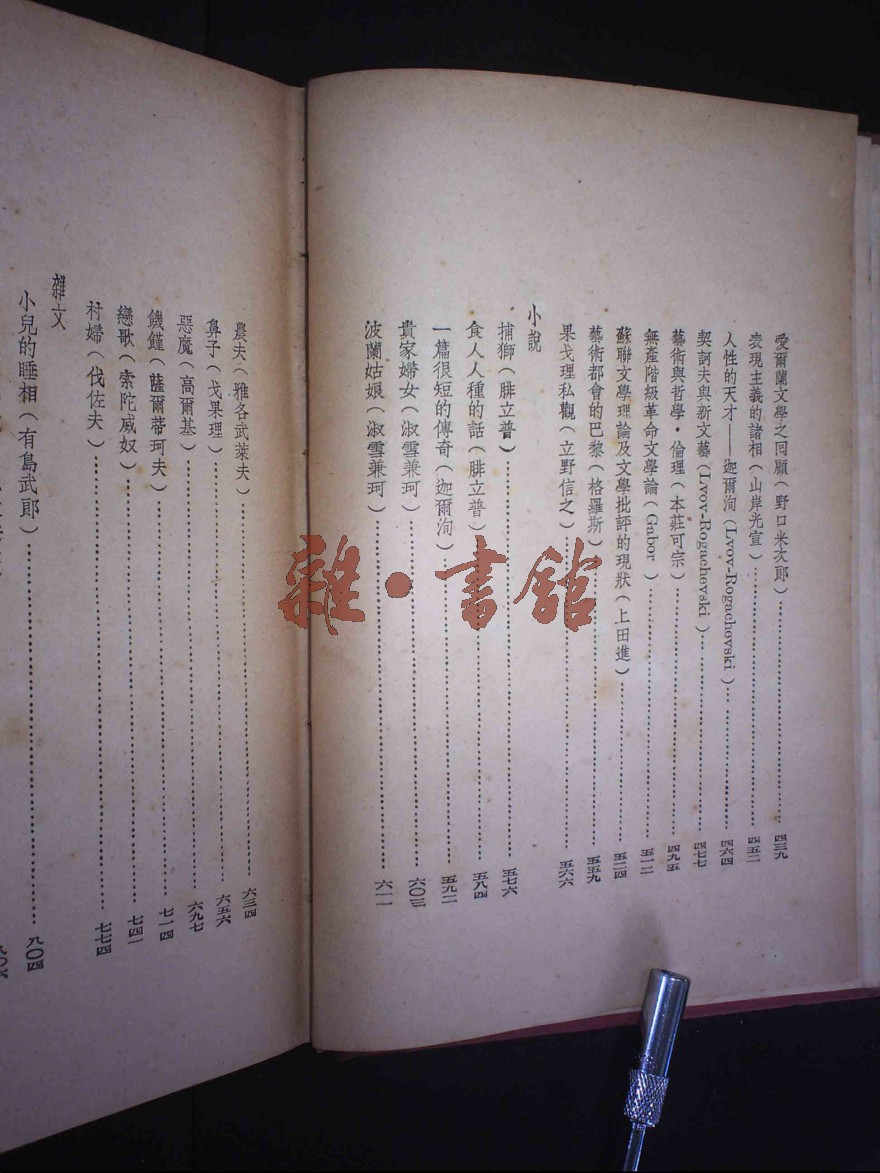 愛爾蘭文學之囘顧(野口米次郎)……四三九
表現主義的諸相(山岸光宣)……四五二
人性的天才——迦爾洵(Lvov-Rogachevski)……四六四
契訶夫與新文藝(Lvov-Rogachevski)……四七七
藝術與哲學・倫理(本莊可宗)……四九五
無產階級革命文學論(Gabor)……五一二
蘇聯文學理論及文學批評的現狀(上田進)……五二四
藝術都會的巴黎(格羅斯)……五五九
果戈理私觀(立野信之)……五六六
小說
捕獅(腓立普)……五七六
食人人種的話(腓立普)……五八四
一篇很短的傳奇(迦爾洵)……五九二
貴家婦女(淑雪兼珂)……六〇三
波蘭姑娘(淑雪兼珂)……六一一
農夫(雅各武萊夫)……六三四
鼻子(戈果理)……六五六
惡魔(高爾基)……六九七
饑饉(薩爾蒂珂夫)……七一四
戀歌(索陀威奴)……七四一
村婦(伐佐夫)……七七四
雜文
小兒的睡相(有島武郎)……八〇四
雜・書館